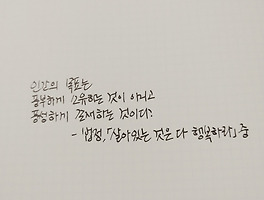 인간의 목표는
풍부하게 소유하는 것이 아니고
풍성하게 존재하는 것이다.
- 법정, 「살아있는 것은 다 행복하라」 중